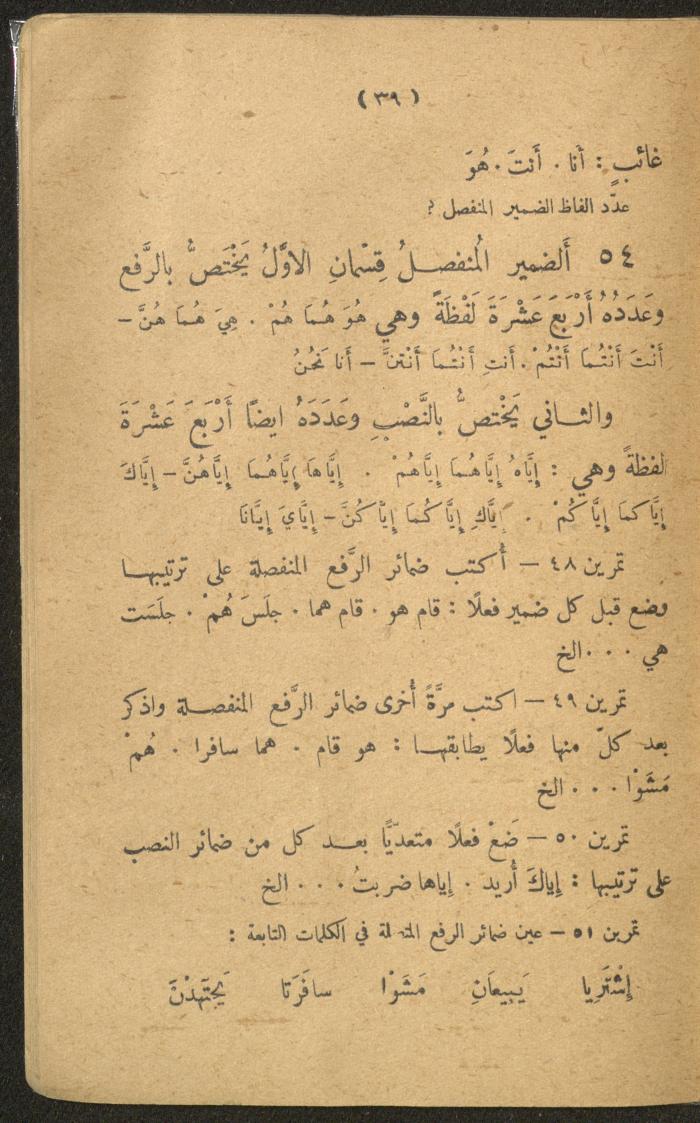 (٣٩)
غائبٍ : أَنا . أَنتَ . هُوَ
عدّد الفاظ الضمير المنفصل ؟
٥٤ أَلضمير المُنفصلُ قِسْمانِ الاوَّلُ يَخْتَصُّ بالرَّفع
وعَدَدُهُ أَرْبَعَ عَشْرَةَ لَفْظَةً وهي هُوَ هُمَا هُمْ . هِيَ هُمَا هُنَّ –
أَنْتَ أَنْتُمَا أَنْتُمْ . أَنتِ أَنْتُمَا أَنْتنَّ – أَنا نَحْنُ
والثاني يَخْتصُّ بالنَّصْبِ وعَدَدَهُ ايضًا أَرْبَعَ عَشْرَةَ
لفظةً وهي : إِيَّاهُ إِيَّاهُمَا إِيَّاهُمْ . إِيَّاهَا إِيَّاهُمَا إِيَّاهُنَّ – إِيَّاكَ
إِيَّاكمَا إِيَّاكُمْ . إِيَّاكِ إِيَّاكُمَا إِيَّاكُنَّ – إِيَّايَ إِيَّانَا
تمرين ٤٨ – أُكتب ضمائر الرَّفع المنفصلة على ترتيبها
وضع قبل كل ضمير فعلًا : قام هو . قام هما . جلَسَ هُمْ . جلَسَت
هي . . . الخ
تمرين ٤٩ – اكتب مرَّةً أُخرى ضمائر الرَّفع المنفصلة واذكر
بعد كلّ منها فعلًا يطابقها : هو قام . هما سافرا . هُمْ
مَشَوْا . . . الخ
تمرين ٥٠ – ضَعْ فعلًا متعدّيًا بعد كل من ضمائر النصب
على ترتيبها : إِياكَ أُريد . إِياها ضربتُ . . . الخ
تمرين ٥١ – عين ضمائر الرفع المتصلة في الكلمات التابعة :
إِشْتَرِيا يَبِيعَانِ مَشَوْا سافَرَتا يَجْتَهِدْنَ